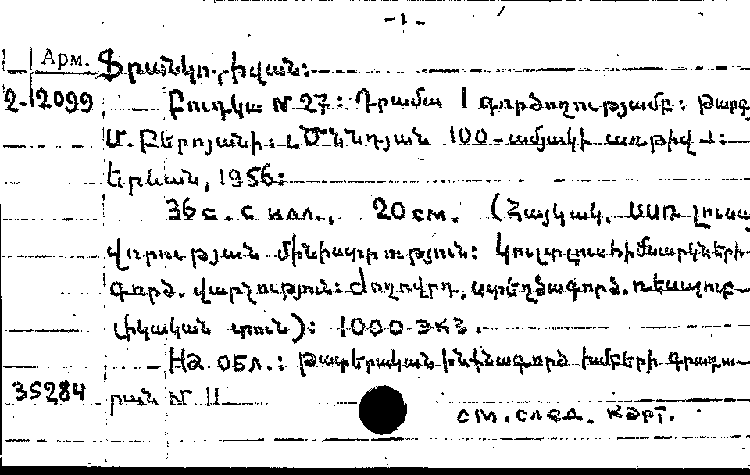 -1-
Арм. Ֆրանկո, Իվան:
2-12099 Բուդկա № 27: Դրամա 1 գործողությամբ: Թարգ
Մ. Բերոյանի. [Ծննդյան 100-ամյակի առթիվ]:
Երևան, 1956:
36 с. с илл., 20 см. (Հայկակ. ՍՍՌ լուսա
վորության մինիստրություն: Կուլտլուսհիմնարկների
գործ. վարչություն: Ժողովրդ. ստեղծագործ. ռեսպուբ-
լիկական տուն): 1000 экз.
На обл.: Թատերական ինքնագործ խմբերի գրադա-
35284 րան № 11
см. след. карт.